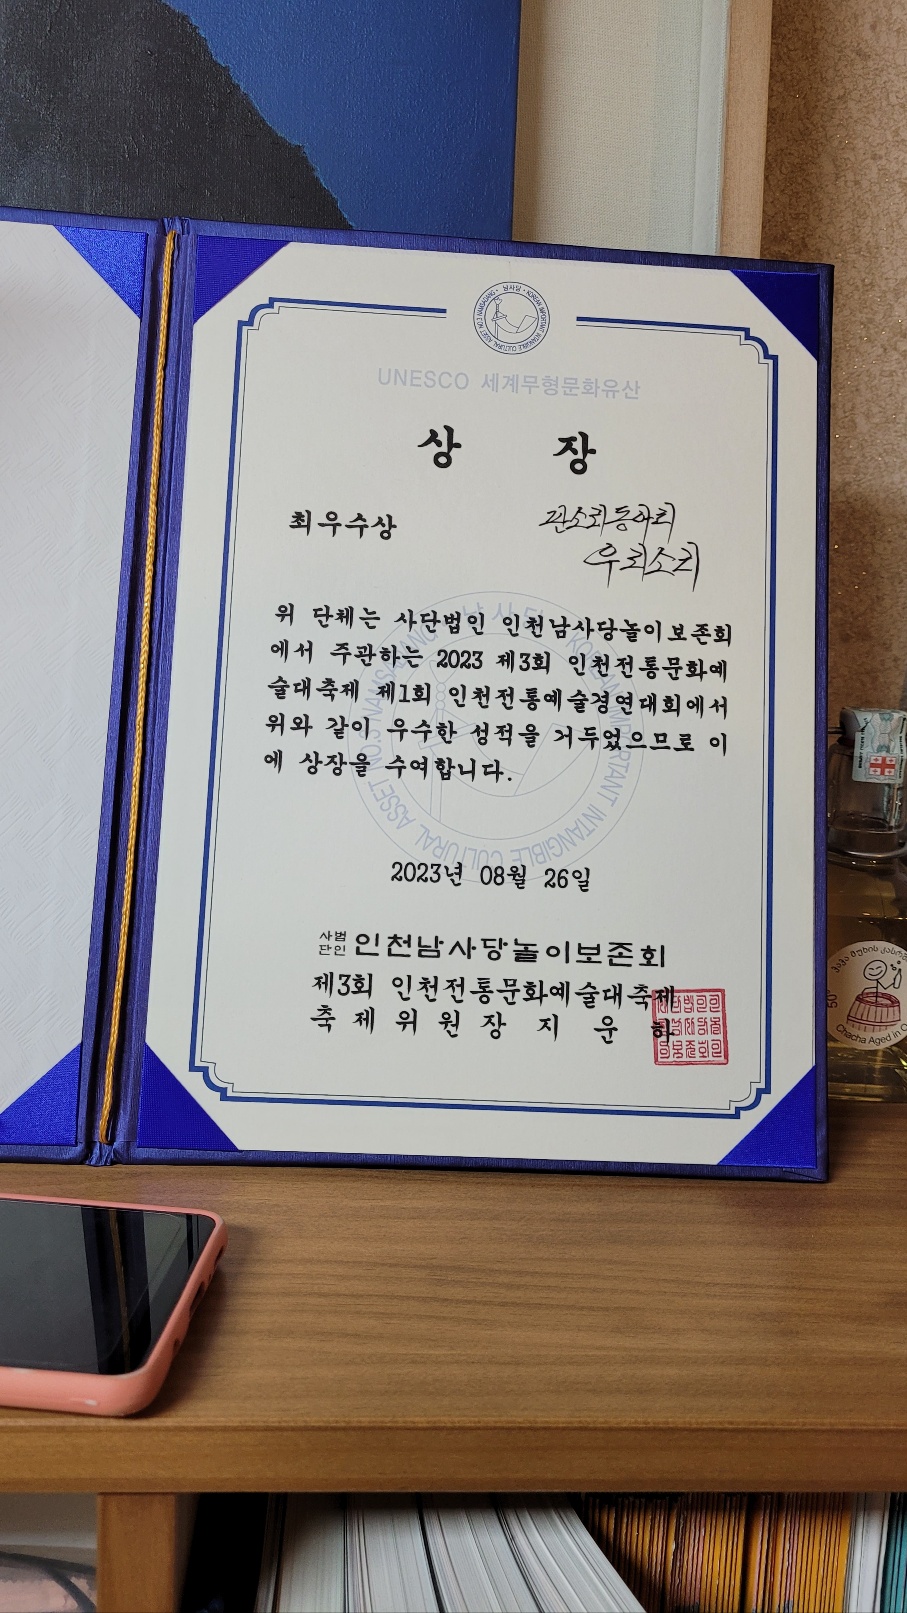 남사당 • KOREAN IMPORTANT INTANGIBLE CULTURAL ASSET NO.3 NAMSADANG •
UNESCO 세계무형문화유산
상 장
최우수상
판소리동아리
우리소리
위 단체는 사단법인 인천남사당놀이보존회
에서 주관하는 2023 제3회 인천전통문화예
술대축제 제1회 인천전통예술경연대회에서
위와 같이 우수한 성적을 거두었으므로 이
에 상장을 수여합니다.
남사당 KOREAN IMPORTANT INTANGIBLE CULTURAL ASSET NO.3 NAMSADANG
2023년 08월 26일
사단법인 인천남사당놀이보존회
제3회 인천전통문화예술대축제
축제위원장 지운하
50°
Chacha Aged in